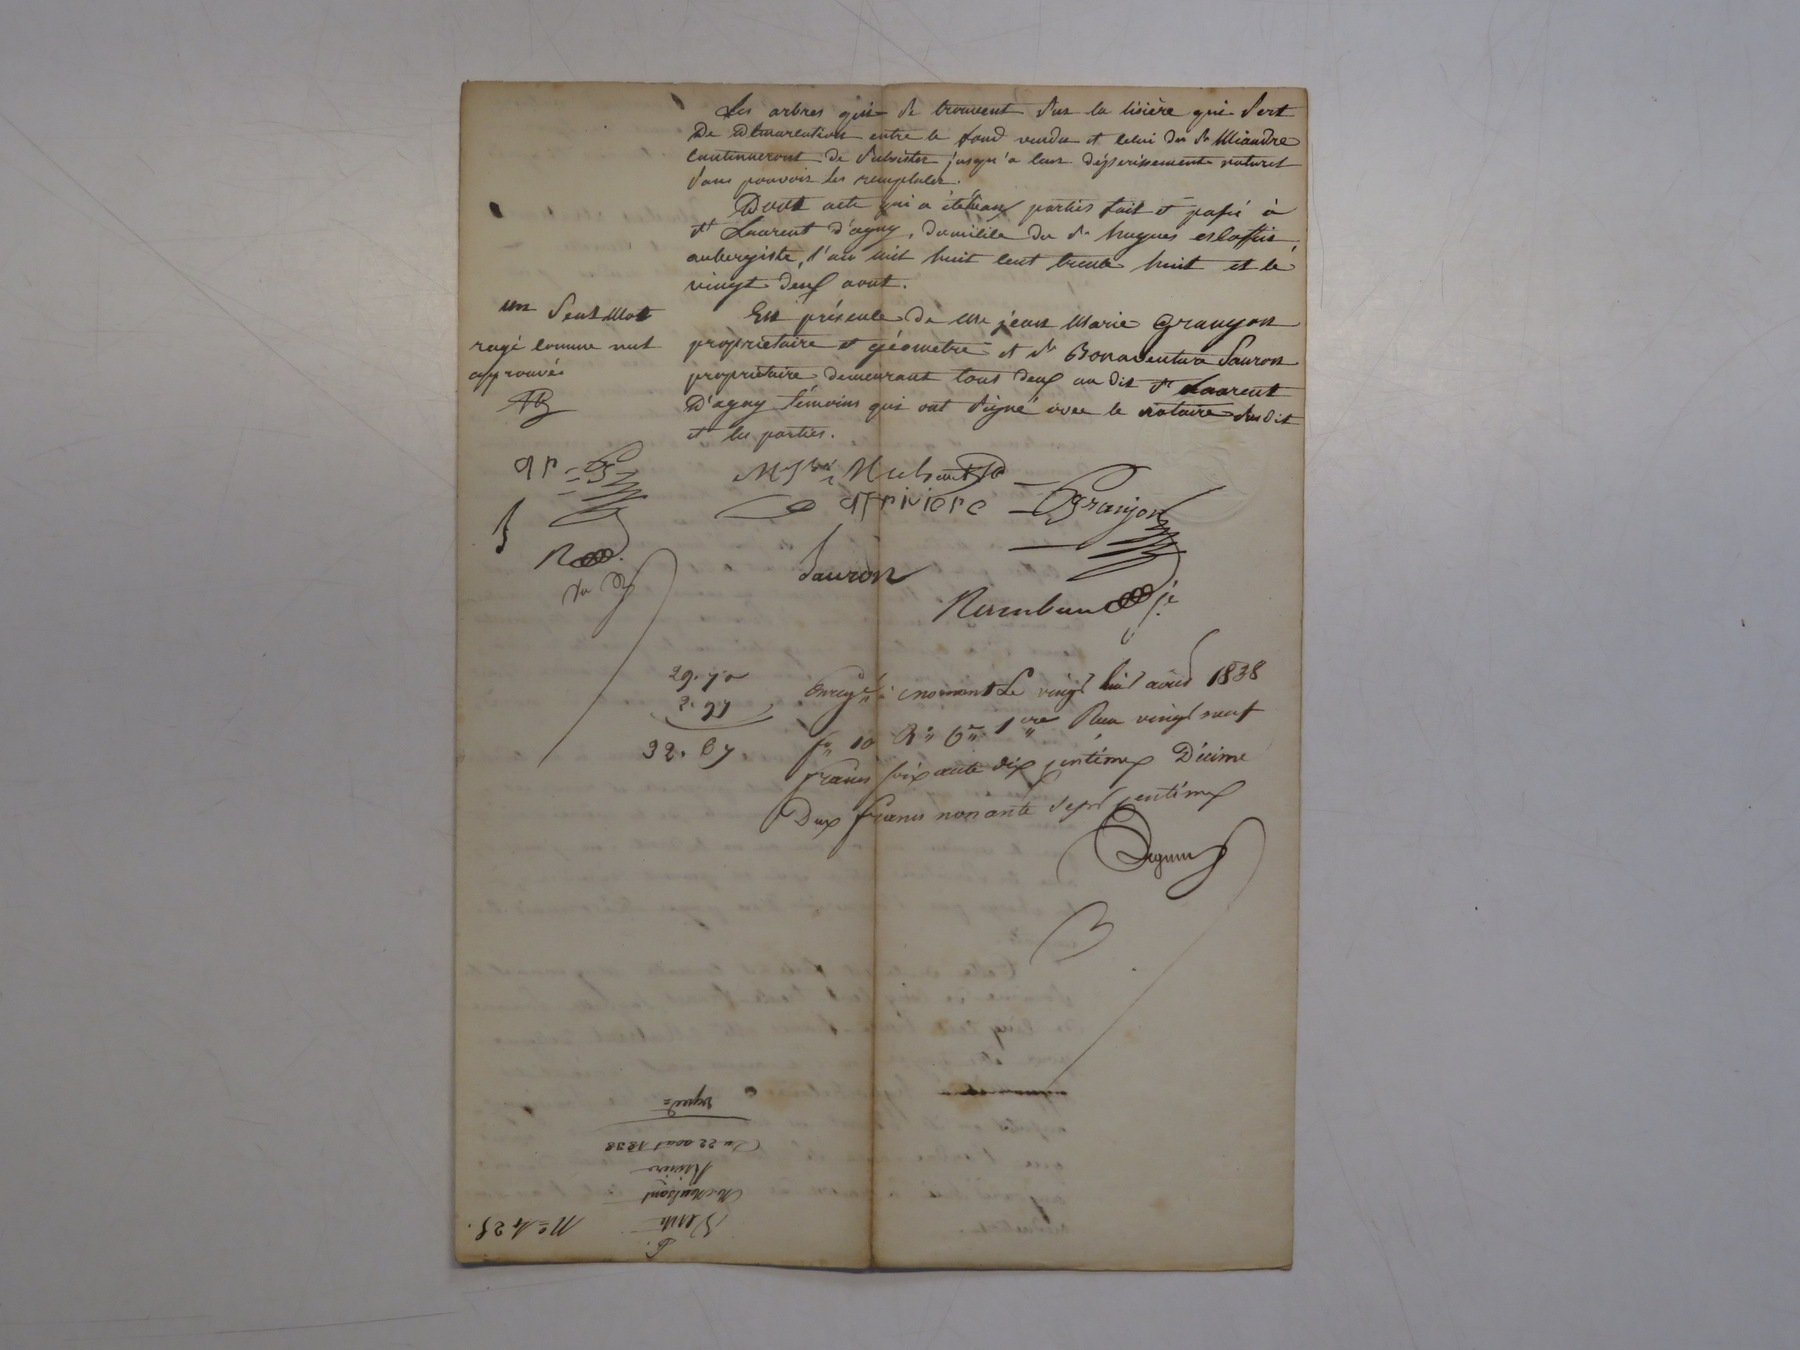 Les arbres qui se trouvent sur la lisière qui sert
de démarcation entre le fond vendu et celui du Sr Miandre
continueront de subsister jusqu'a leur déperissement naturel
sans pouvoir les remplacer.
Dont acte qui a été aux parties fait et passé à
St Laurent d'agny, domicile du Sr hugues
aubergiste, l'an mil huit cent trente huit et le
vingt deux aout.
En présence de Mr jean Marie Granjon
propriétaire et géometre et Sr Bonaventure Sauron
propriétaire demeurant tous deux au dit St Laurent
D'agny témoins qui ont signé avec le notaire susdit
et les parties.
un seul mot
rayé comme nul
approuvé
arriere Granjon
Sauron
Rambau
29.70
2.97
32.67
à mornant Le vingt huit août 1838
fo 10 Ro Reçu vingt neuf
francs soixante dix centimes Décime
Deux francs nonante sept centimes
No 425.
Vente
Riviere
Du 22 aout 1838